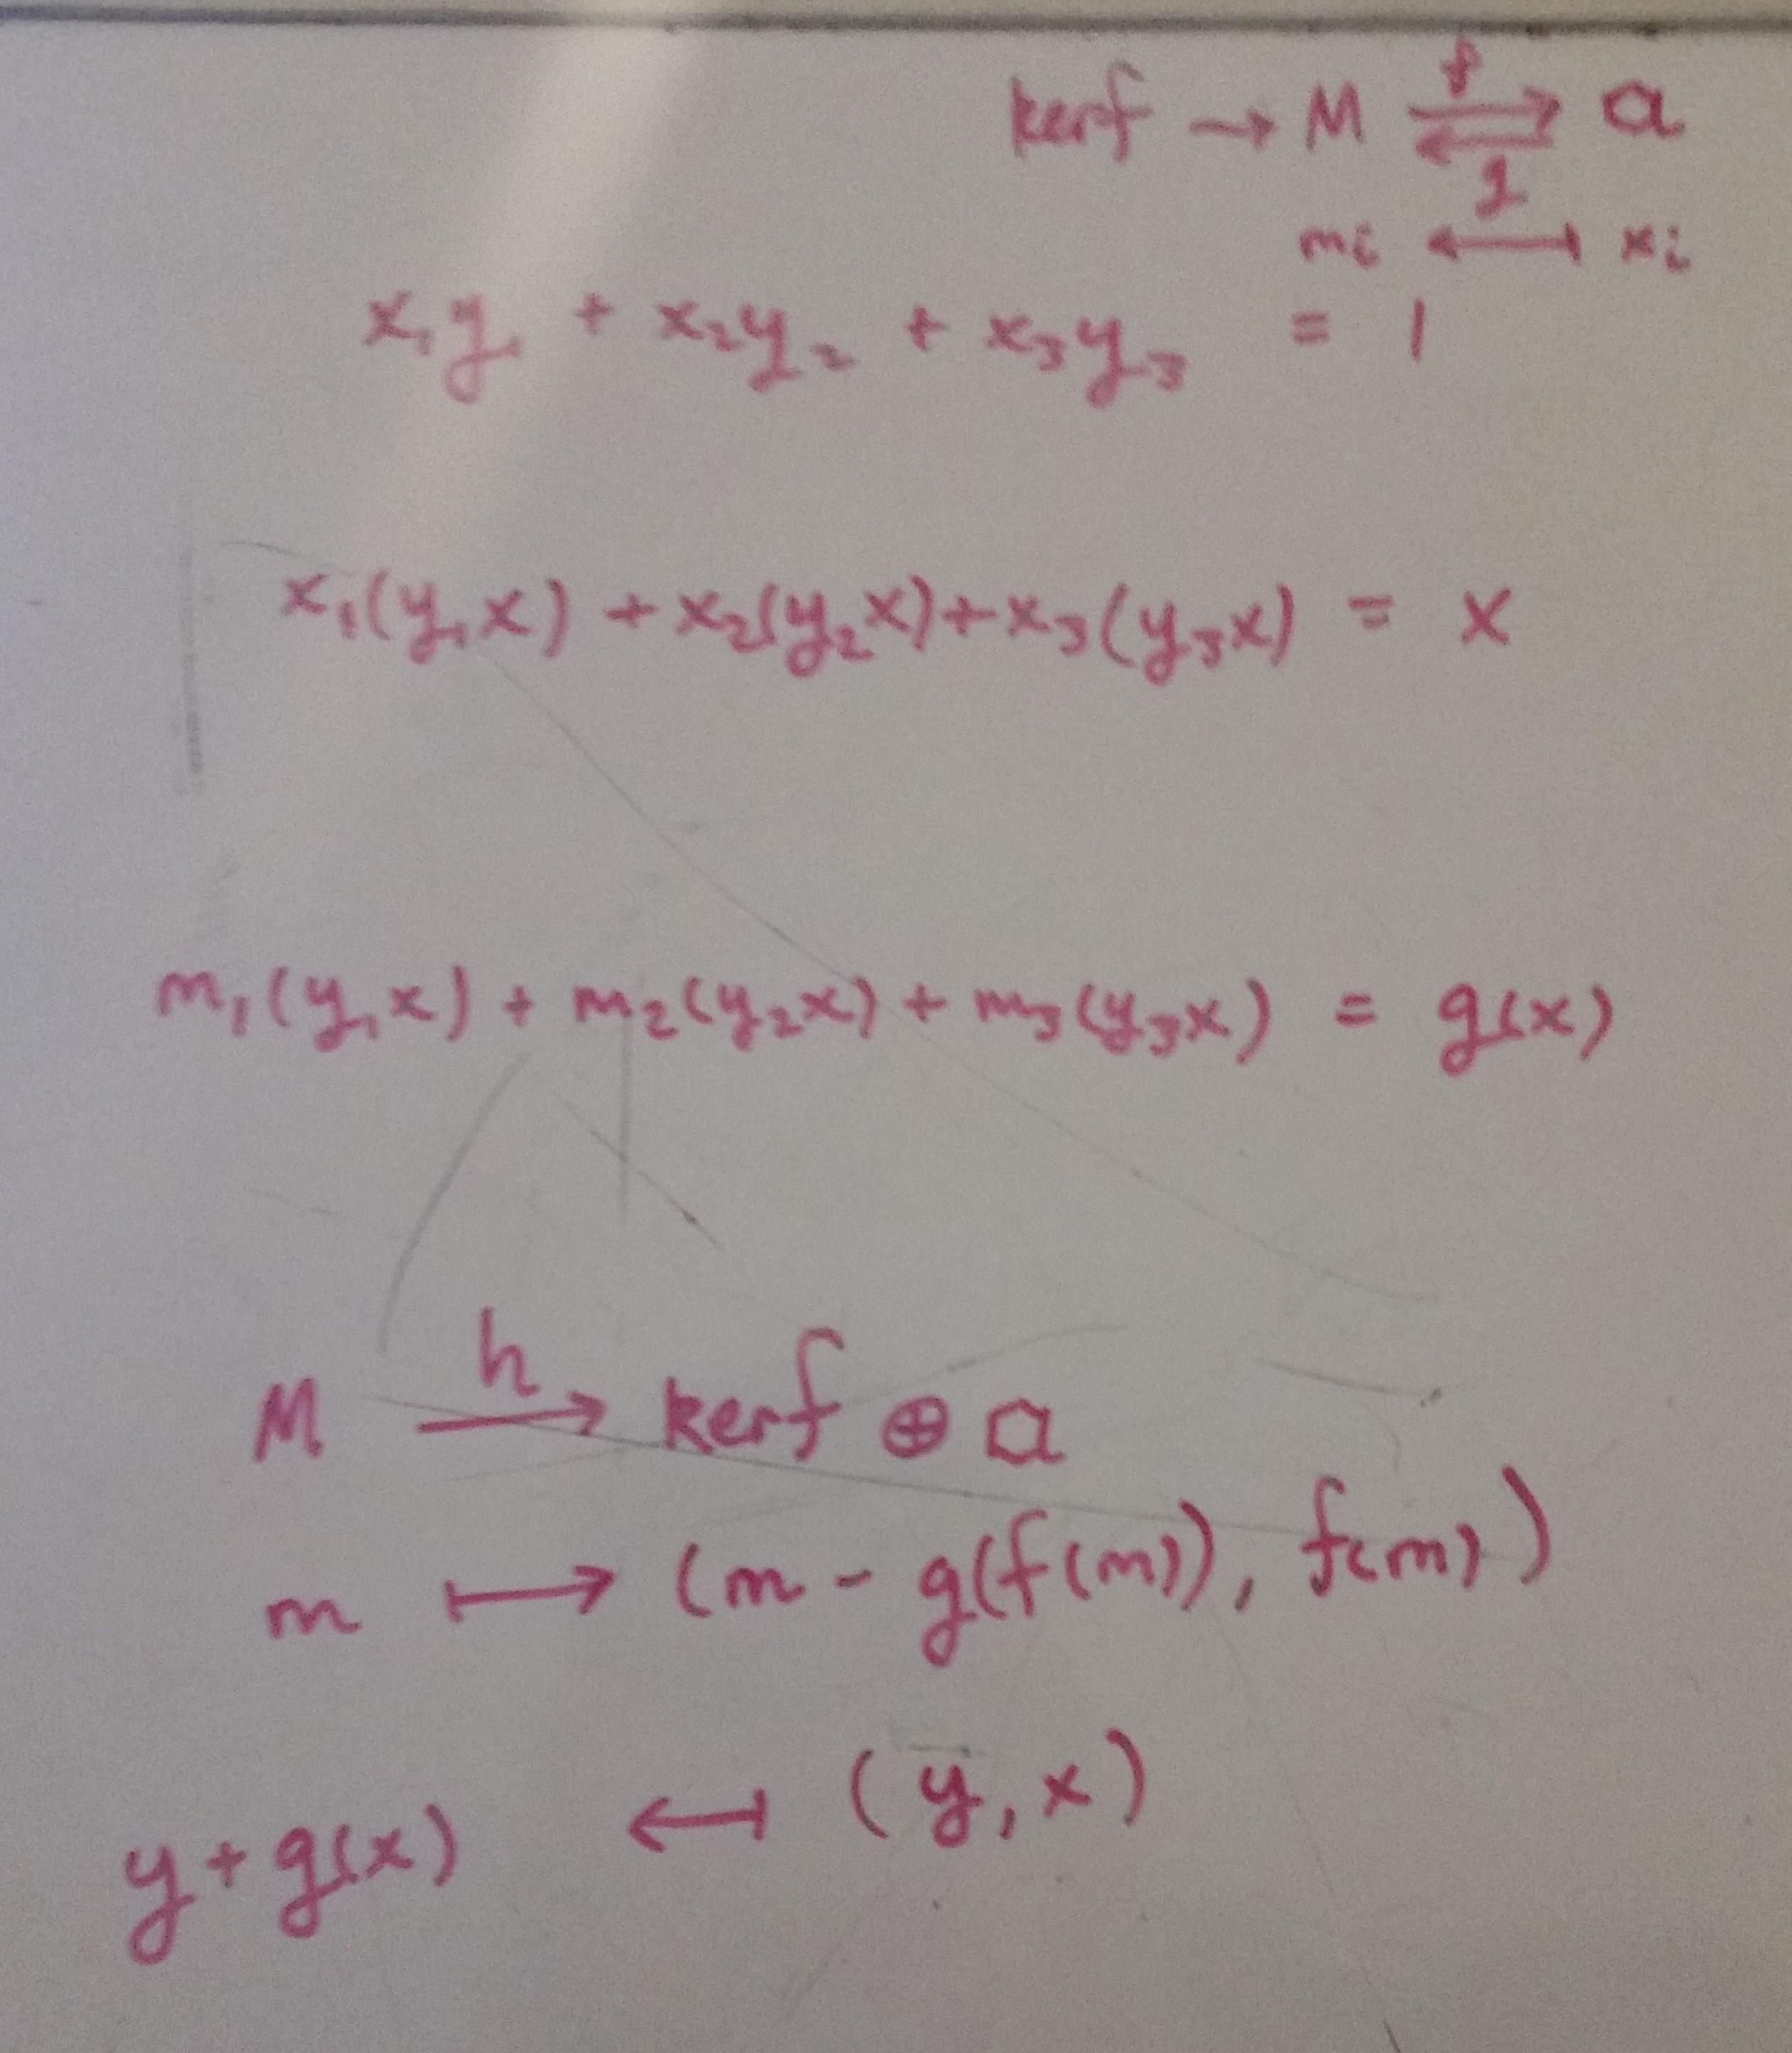 kerf → M ⇄ a
f
g
mi ↤ xi
x₁y₁ + x₂y₂ + x₃y₃ = 1
x₁(y₁x) + x₂(y₂x) + x₃(y₃x) = x
m₁(y₁x) + m₂(y₂x) + m₃(y₃x) = g(x)
h
M → kerf ⊕ a
m ↦ (m - g(f(m)), f(m))
y + g(x) ↤ (y, x)